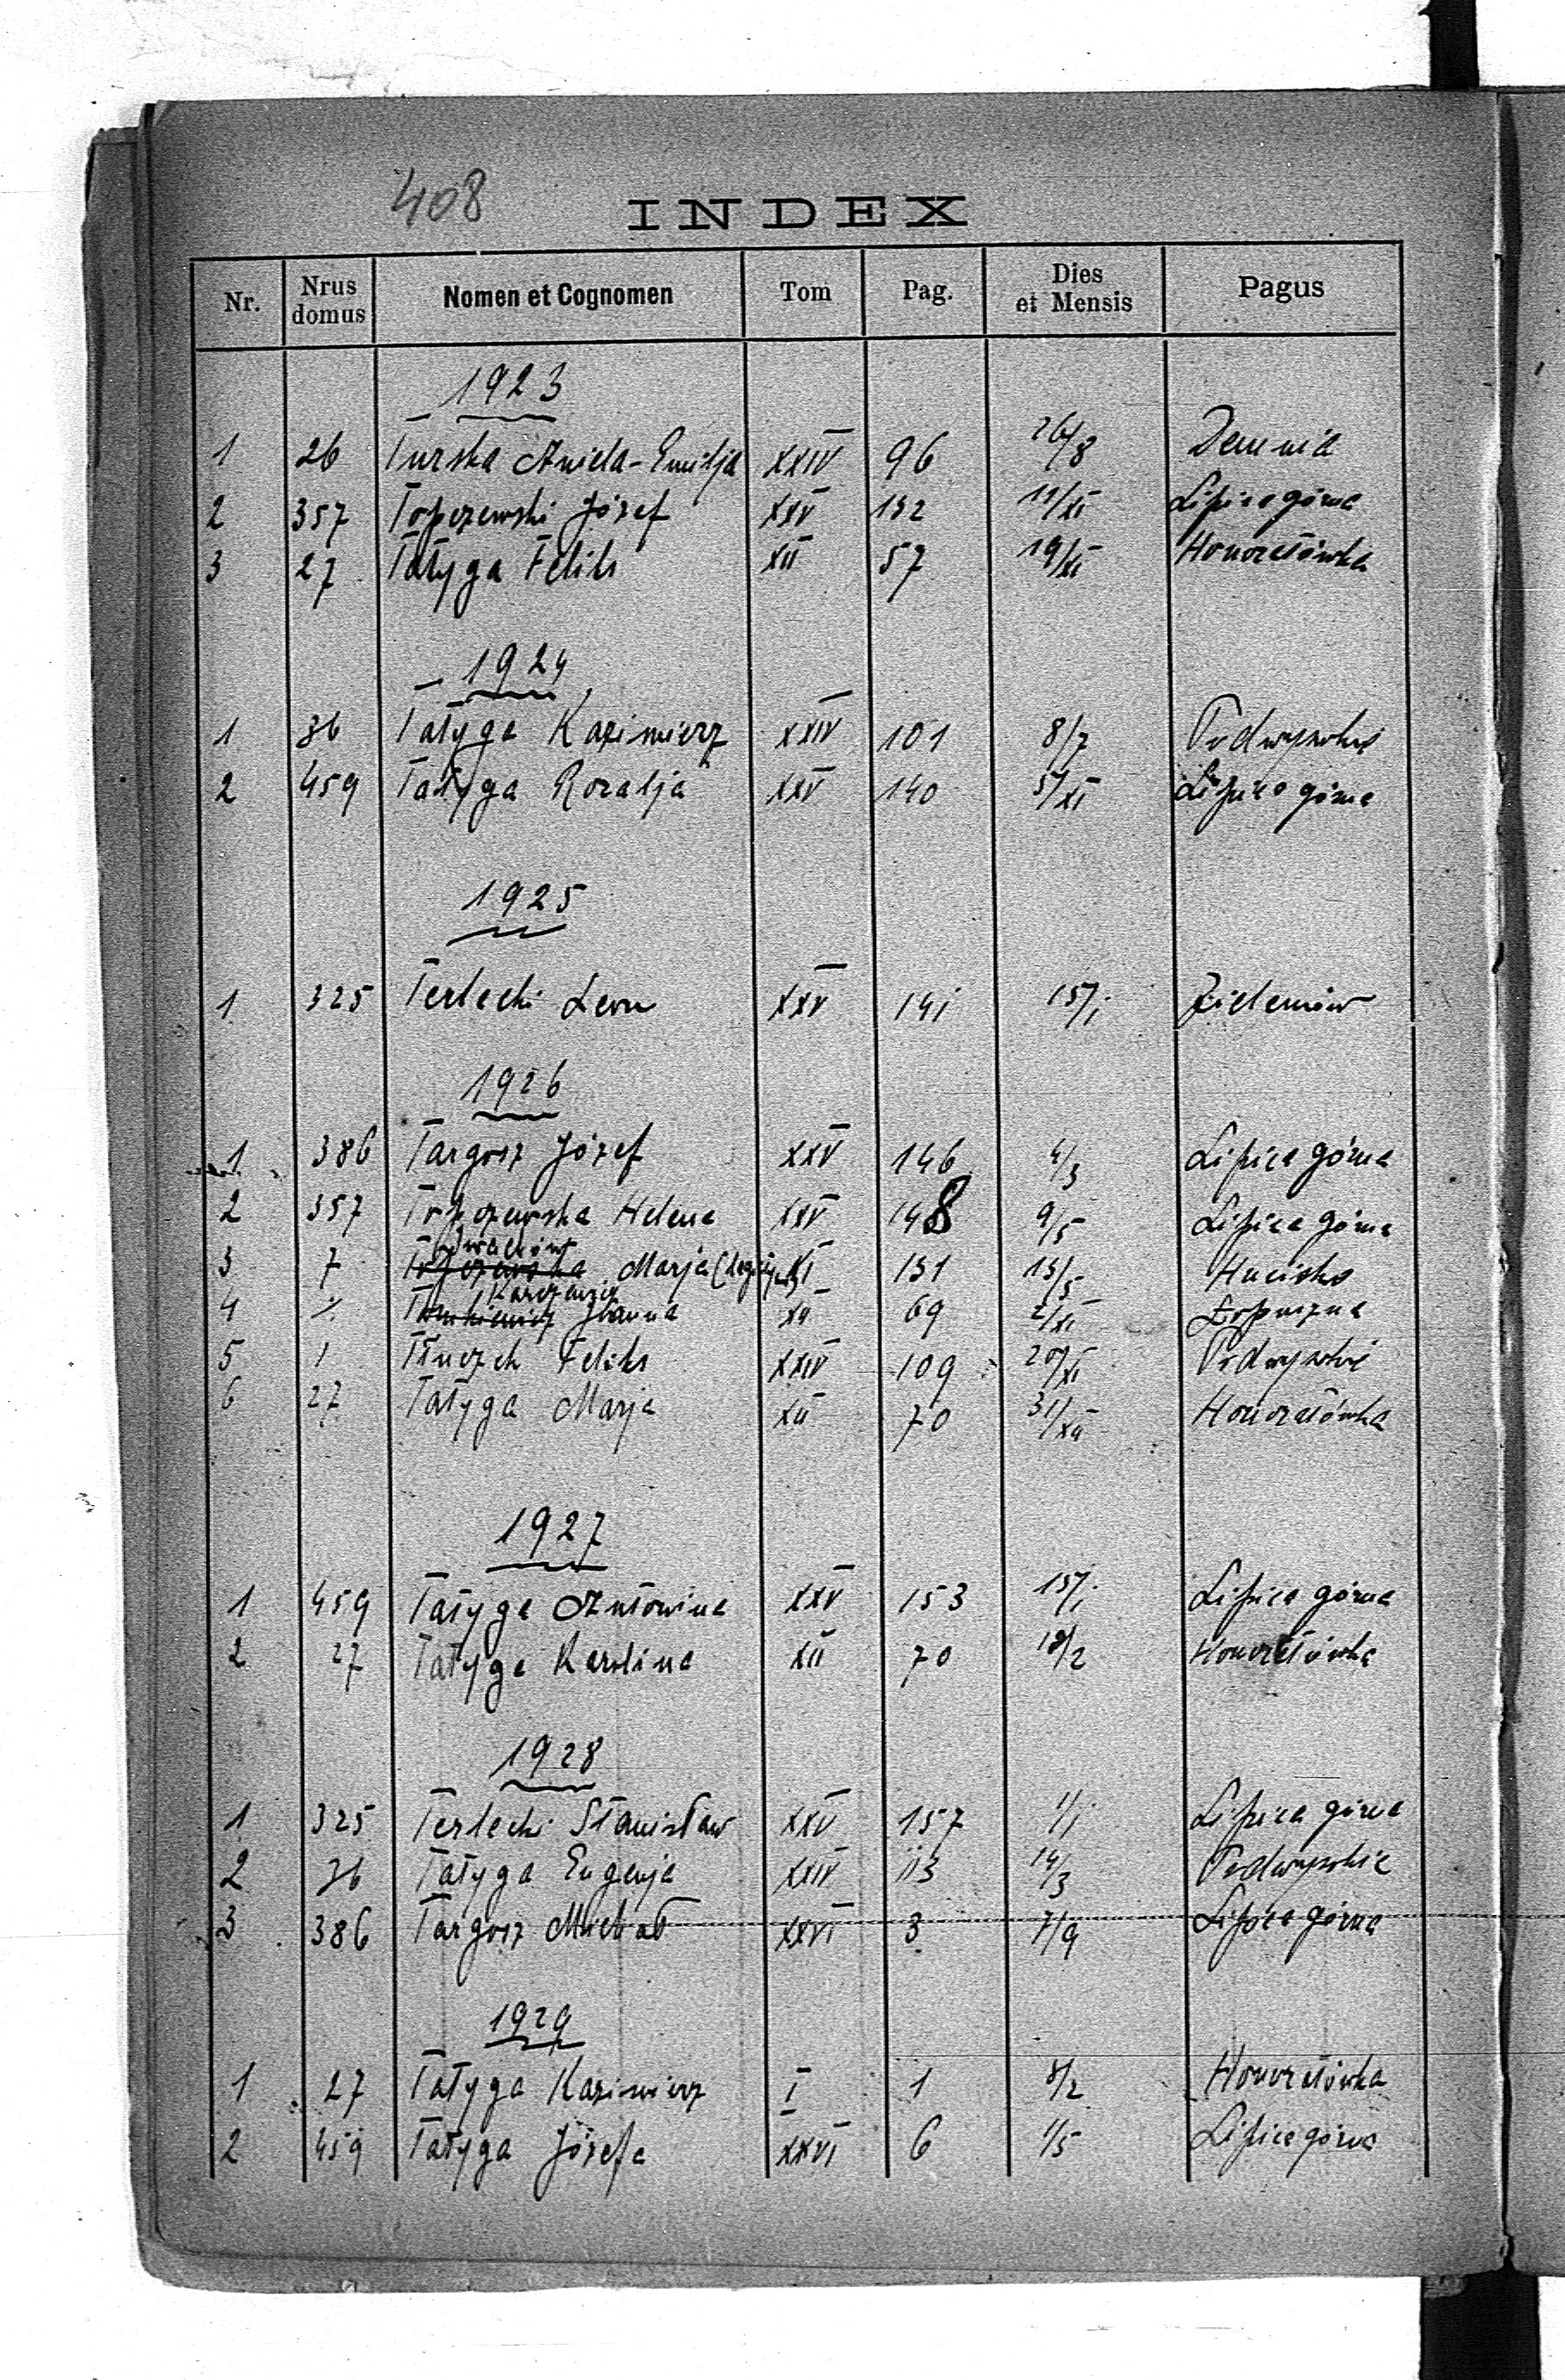 408
INDEX
Nr. Nrus domus Nomen et Cognomen Tom Pag. Dies et Mensis Pagus
1923
1 26 Turska Aniela-Emilja XXIV 96 26/8 Demnia
2 357 Topczewski Józef XXV 132 11/XI Lipica górna
3 27 Tałyga Feliks XII 57 19/XI Honoratówka
1924
1 36 Tałyga Kazimierz XXIV 101 8/7 Podwysokie
2 459 Tałyga Rozalja XXV 140 5/XI Lipica górna
1925
1 325 Terlecki Leon XXV 141 15/I Zieleniów
1926
1 386 Targosz Józef XXV 146 4/3 Lipica górna
2 357 Topczewska Helena XXV 148 9/5 Lipica górna
3 7 Topczewska Marja XI 131 13/5 Hucisko
4 Joanna XII 69 2/XI Łopuszna
5 1 Tłuczek Feliks XXIV 109 20/XI Podwysokie
6 27 Tałyga Marja XII 70 31/XII Honoratówka
1927
1 459 Tałyga Antonina XXV 153 15/I Lipica górna
2 27 Tałyga Karolina XII 70 18/2 Honoratówka
1928
1 325 Terlecki Stanisław XXV 157 1/I Lipica górna
2 36 Tałyga Eugenja XXIV 113 14/3 Podwysokie
3 386 Targosz Michał XXVI 3 7/9 Lipica górna
1929
1 27 Tałyga Kazimierz I 1 8/2 Honoratówka
2 459 Tałyga Józefa XXVI 6 1/5 Lipica górna